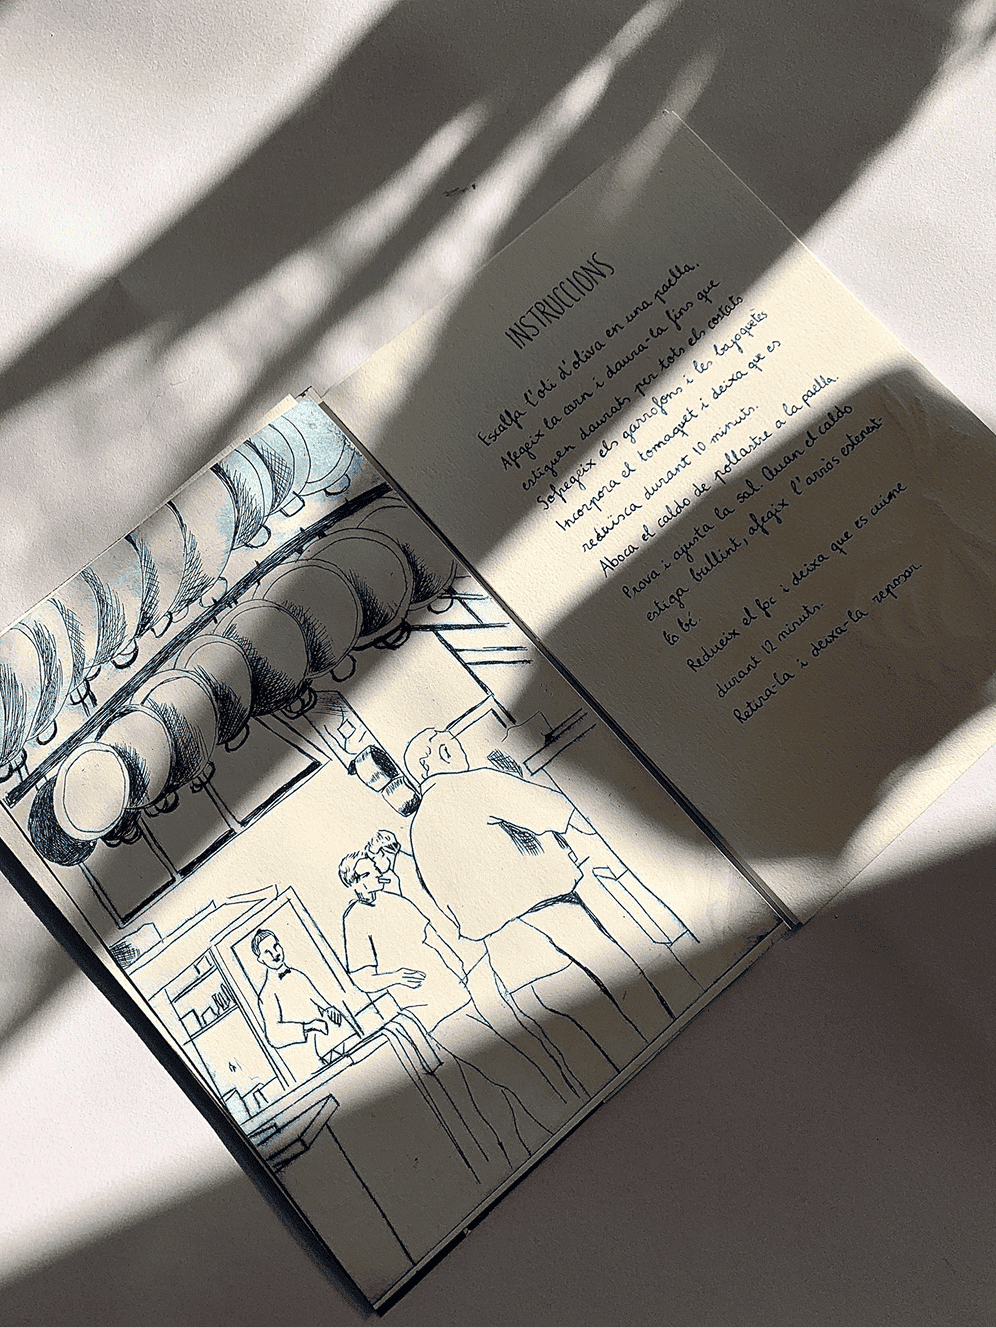 INSTRUCCIONS
Escalfa l'oli d'oliva en una paella.
Afegeix la carn i daura-la fins que
estiguen daurats per tots els costats
Sofregeix els garrofons i les bajoquetes
Incorpora el tomaquet i deixa que es
reduïsca durant 10 minuts.
Aboca el caldo de pollastre a la paella.
Prova i ajusta la sal. Quan el caldo
estiga bullint, afegix l'arròs estenent-
lo bé.
Redueix el foc i deixa que es cuine
durant 12 minuts.
Retira-la i deixa-la reposar.